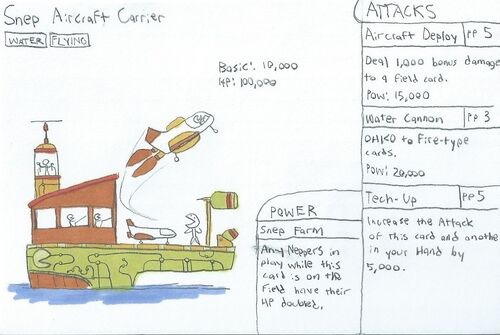 Snep Aircraft Carrier
WATER FLYING
Basic: 10,000
HP: 100,000
POWER
Snep Farm
Any Neppers in
play while this
card is on the
Field have their
HP doubled.
ATTACKS
Aircraft Deploy PP 5
Deal 1,000 bonus damage
to a field card.
Pow: 15,000
Water Cannon PP 3
OHKO to Fire-type
cards.
Pow: 20,000
Tech-Up PP 5
Increase the Attack
of this card and another
in your Hand by
5,000.